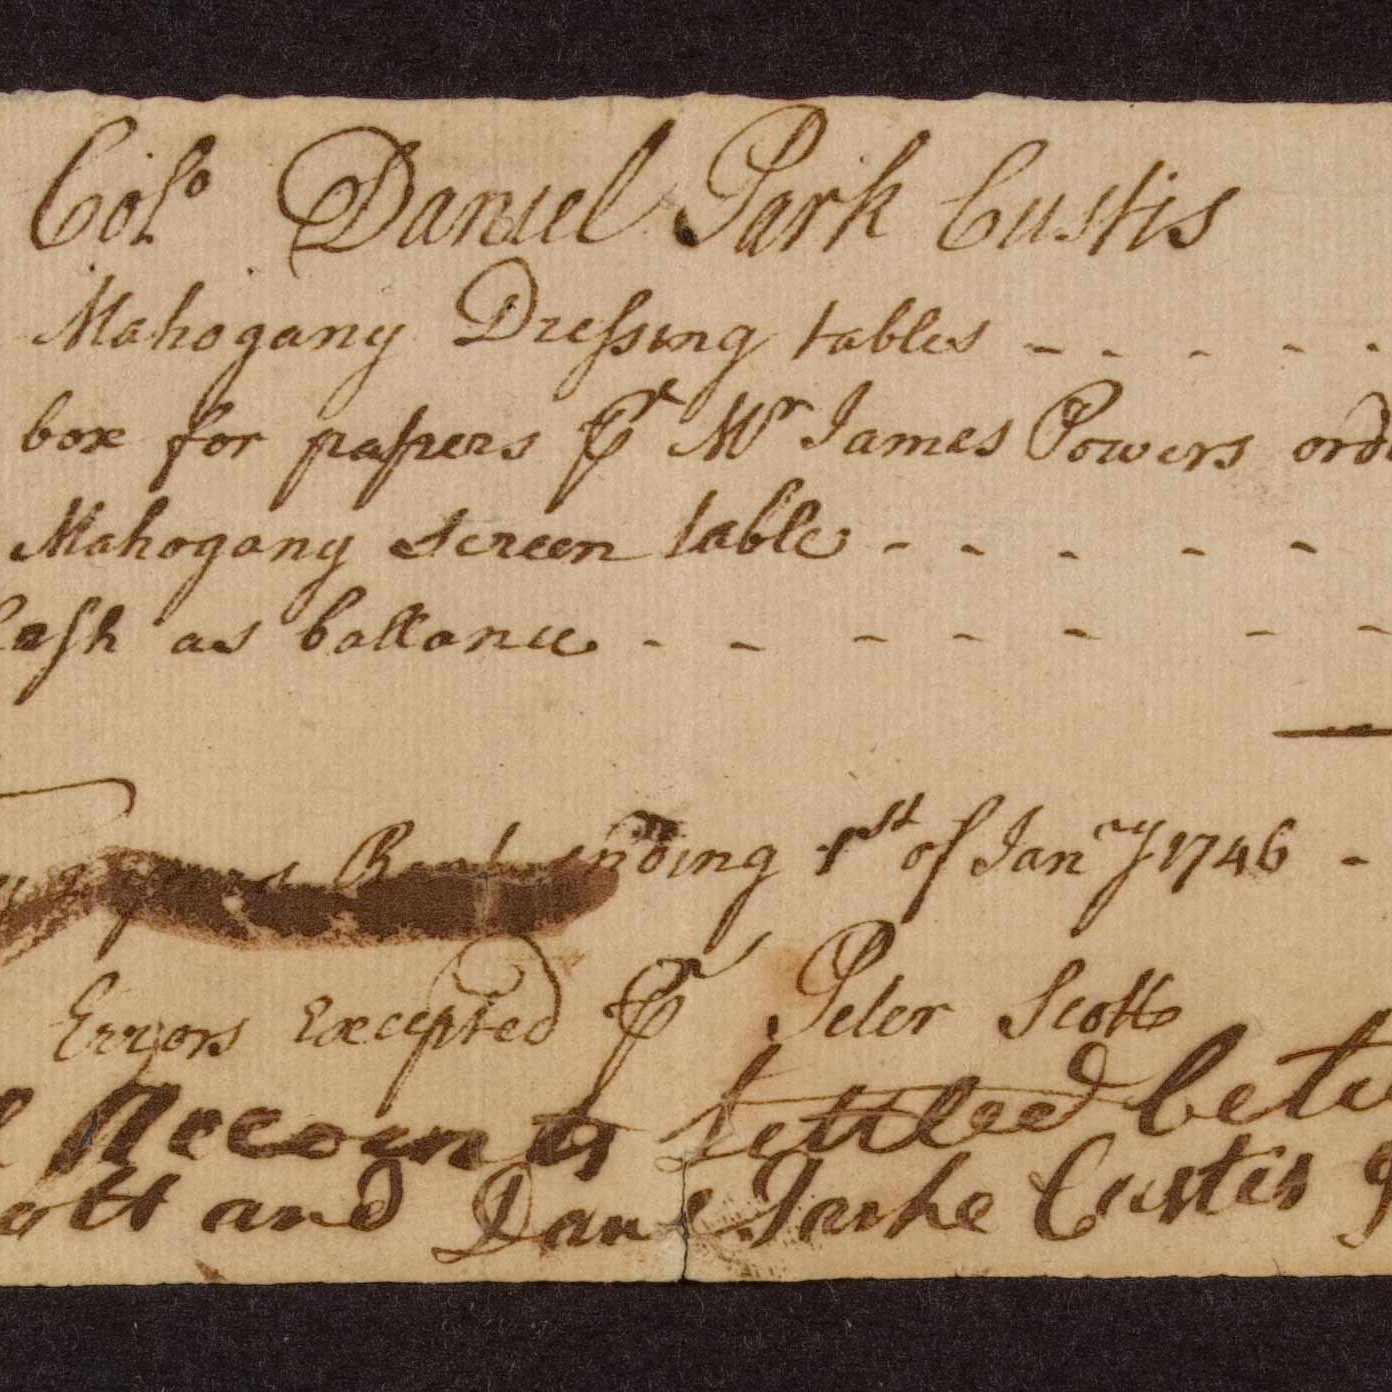 Colo Daniel Park Custis
Mahogany Dreſsing tables - - - - -
box for papers ⅌r Mr James Powers ord
Mahogany screen table - - - - -
Caſh as ballance - - - - - - -
Rent ending 1st of Janry 1746 -
Errors Excepted ⅌r Peter Scott
Accounts settled betw
ott and Danl Parke Custis